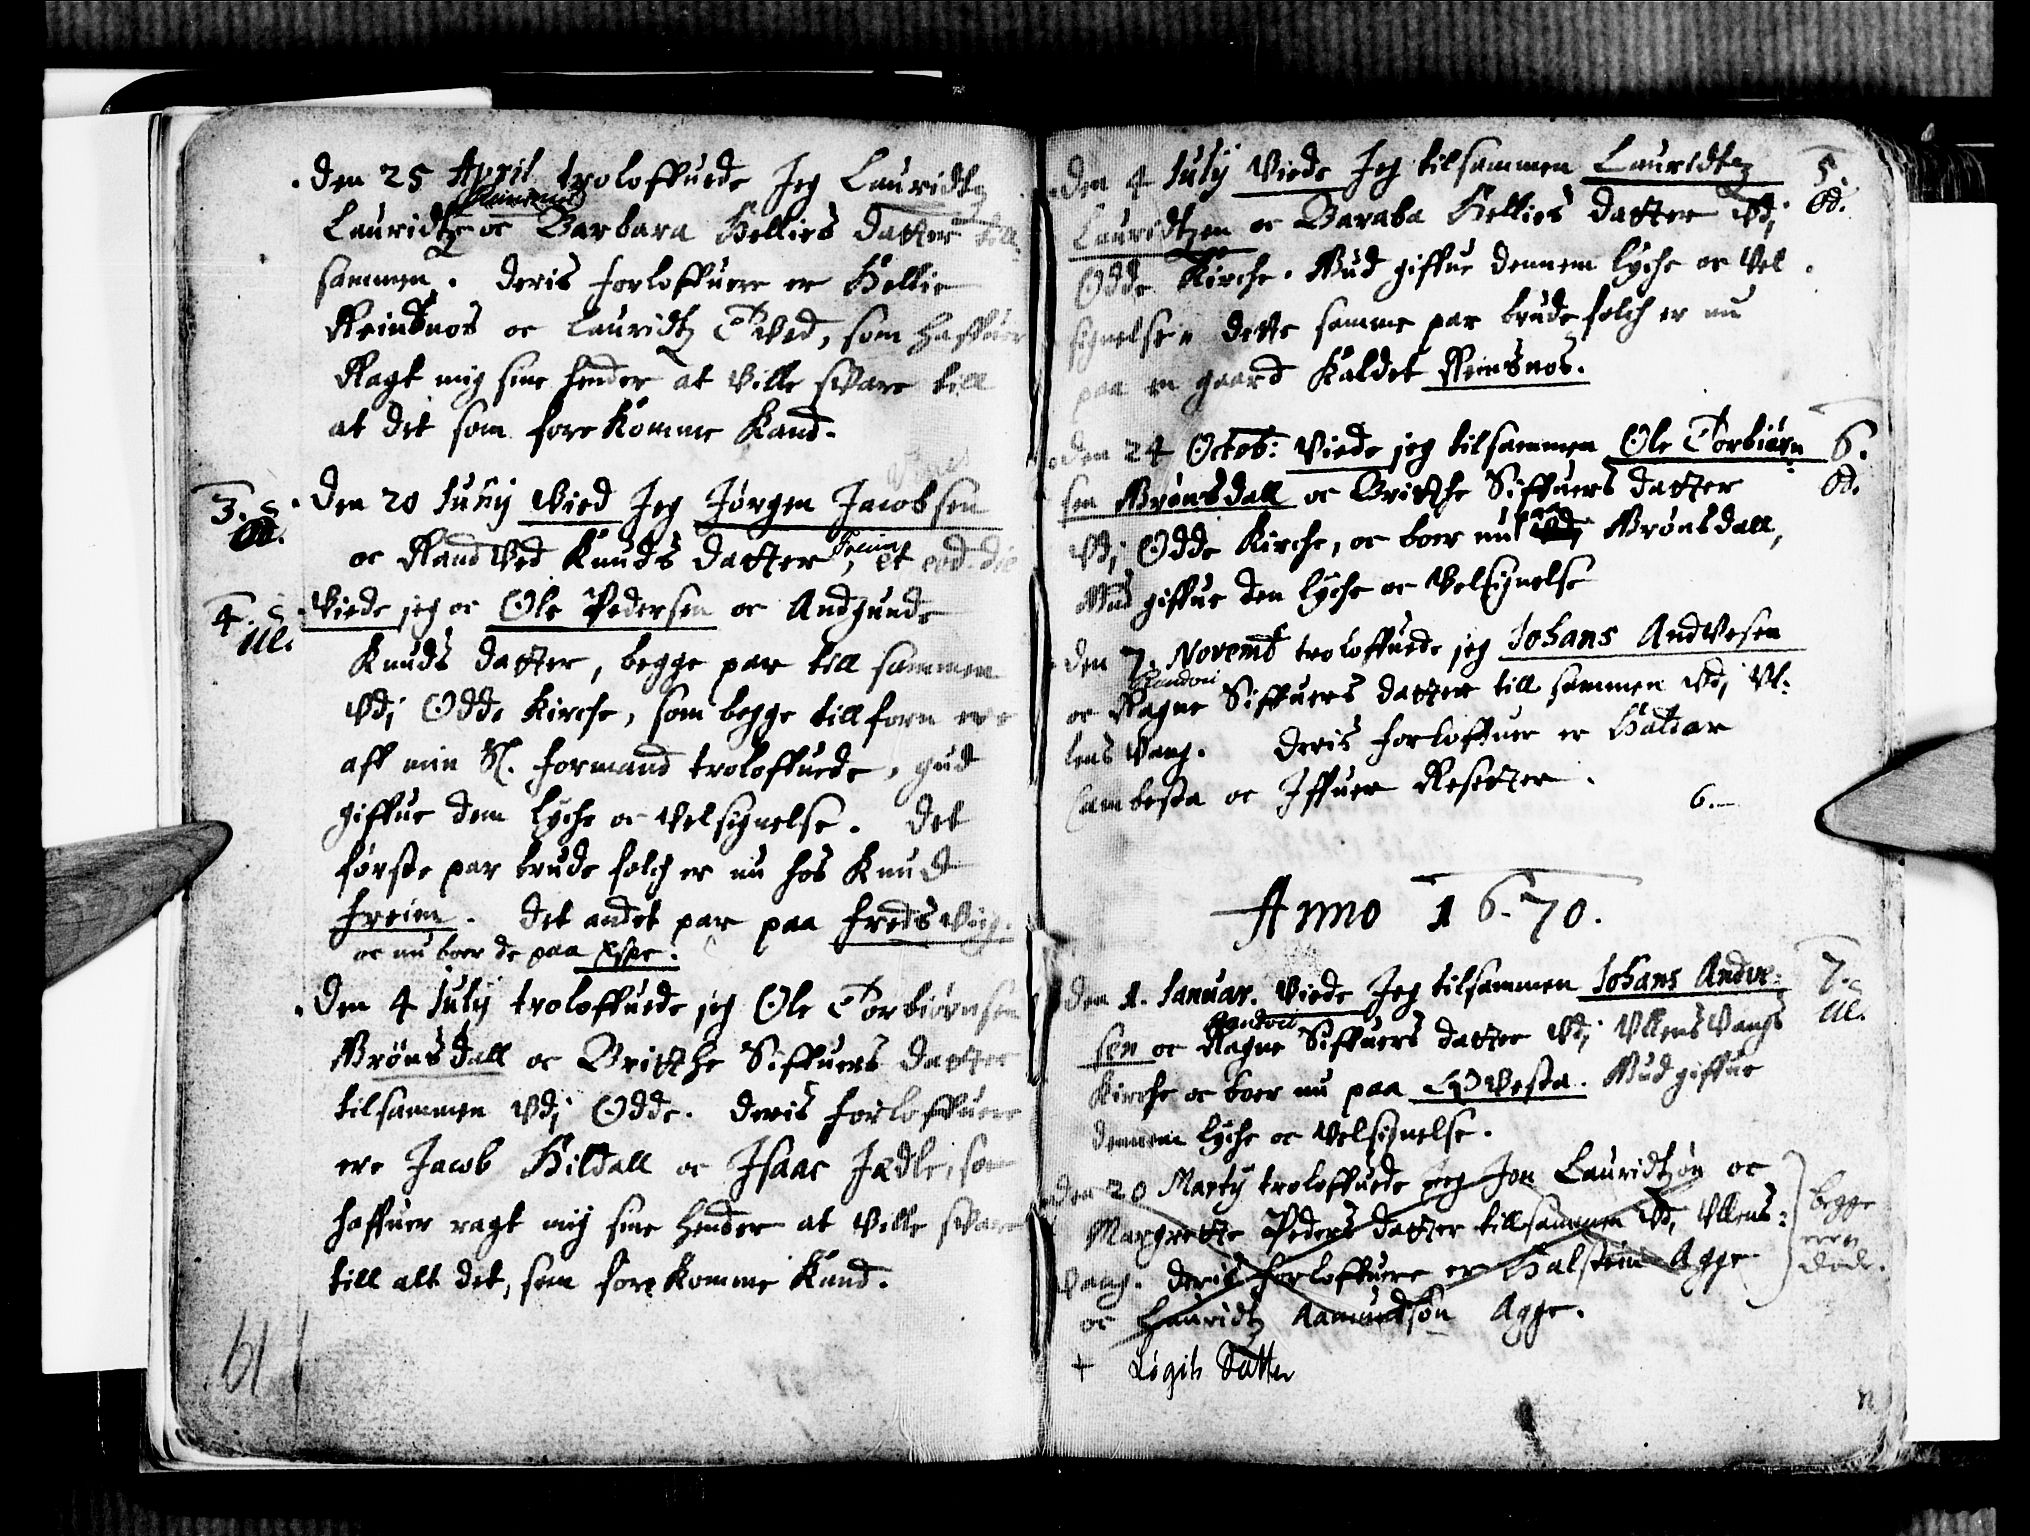 Den 25 April troloffuede Jeg Lauridtz
Lauridtz oc Barbara Hellies datter till
sammen. Deris forloffuere er Hellie
Reinsnos oc Lauridtz Tved, som haffuer
Ragt mig sine hender at ville svare till
at det som forekomme kand.
3. Od. Den 20 Junij Vied Jeg Jørgen Jacobsen
oc Randved Knuds datter, Freim et eod. die
4. Ul. Viede jeg oc Ole Pedersen oc Andgunde
Knuds datter, begge par till sammen
Vdj Odde Kirche, som begge tillforn ere
aff min Sl. formand troloffuede, gud
giffue dem lyche oc velsignelse. Det
første par brudefolch er nu hos Knud
Freim. Det andet par paa Fredsviig.
oc nu boer de paa Espe.
Den 4 Julij troloffuede jeg Ole Torbiørnsen
Brønsdall oc Britthe Siffuers datter
tilsammen Vdj Odde. Deris forloffuere
ere Jacob Hildall oc Isaac Jædle, som
haffuer ragt mig sine hender at ville svare
till alt det, som forekomme kand.
61
Den 4 Julij Viede Jeg tilsammen Lauridtz 5.
Lauridtzen oc Baraba Hellies datter Vdj Od.
Odde Kirche. Gud giffue dennem lyche oc vel
signelse. dette samme par brudefolch er nu
paa en gaard kaldet Reinsnos.
Den 24 Octob: Viede jeg tilsammen Ole Torbiørn 6.
sen Brønsdall oc Britthe Siffuers datter Od.
Vdj Odde Kirche, oc boer nu paa Brønsdall,
Gud giffue den lyche oc velsignelse
Den 7. Novemb troloffuede jeg Johans Andvesen
oc Ragne Siffuers datter till sammen Vdj Vl-
lensvang. Deris forloffuer er Haldar
Cambesta oc Iffuer Reiseter.
6.
Anno 1670.
Den 1. Januar. Viede Jeg tilsammen Johans Andve- 7.
sen oc Ragne Siffuers datter Vdj Vllensvangs Ul.
Kirche oc boer nu paa Qvesta. Gud giffue
dennem lyche oc velsignelse.
Den 20 Martij troloffuede jeg Jon Lauridtzøn oc
Margrette Peders datter tillsammen Vdj Vllens- begge
vang. Deris forloffuere er Halstein Agge ere
oc Lauridtz Aamundsøn Agge. døde.
+ Datter